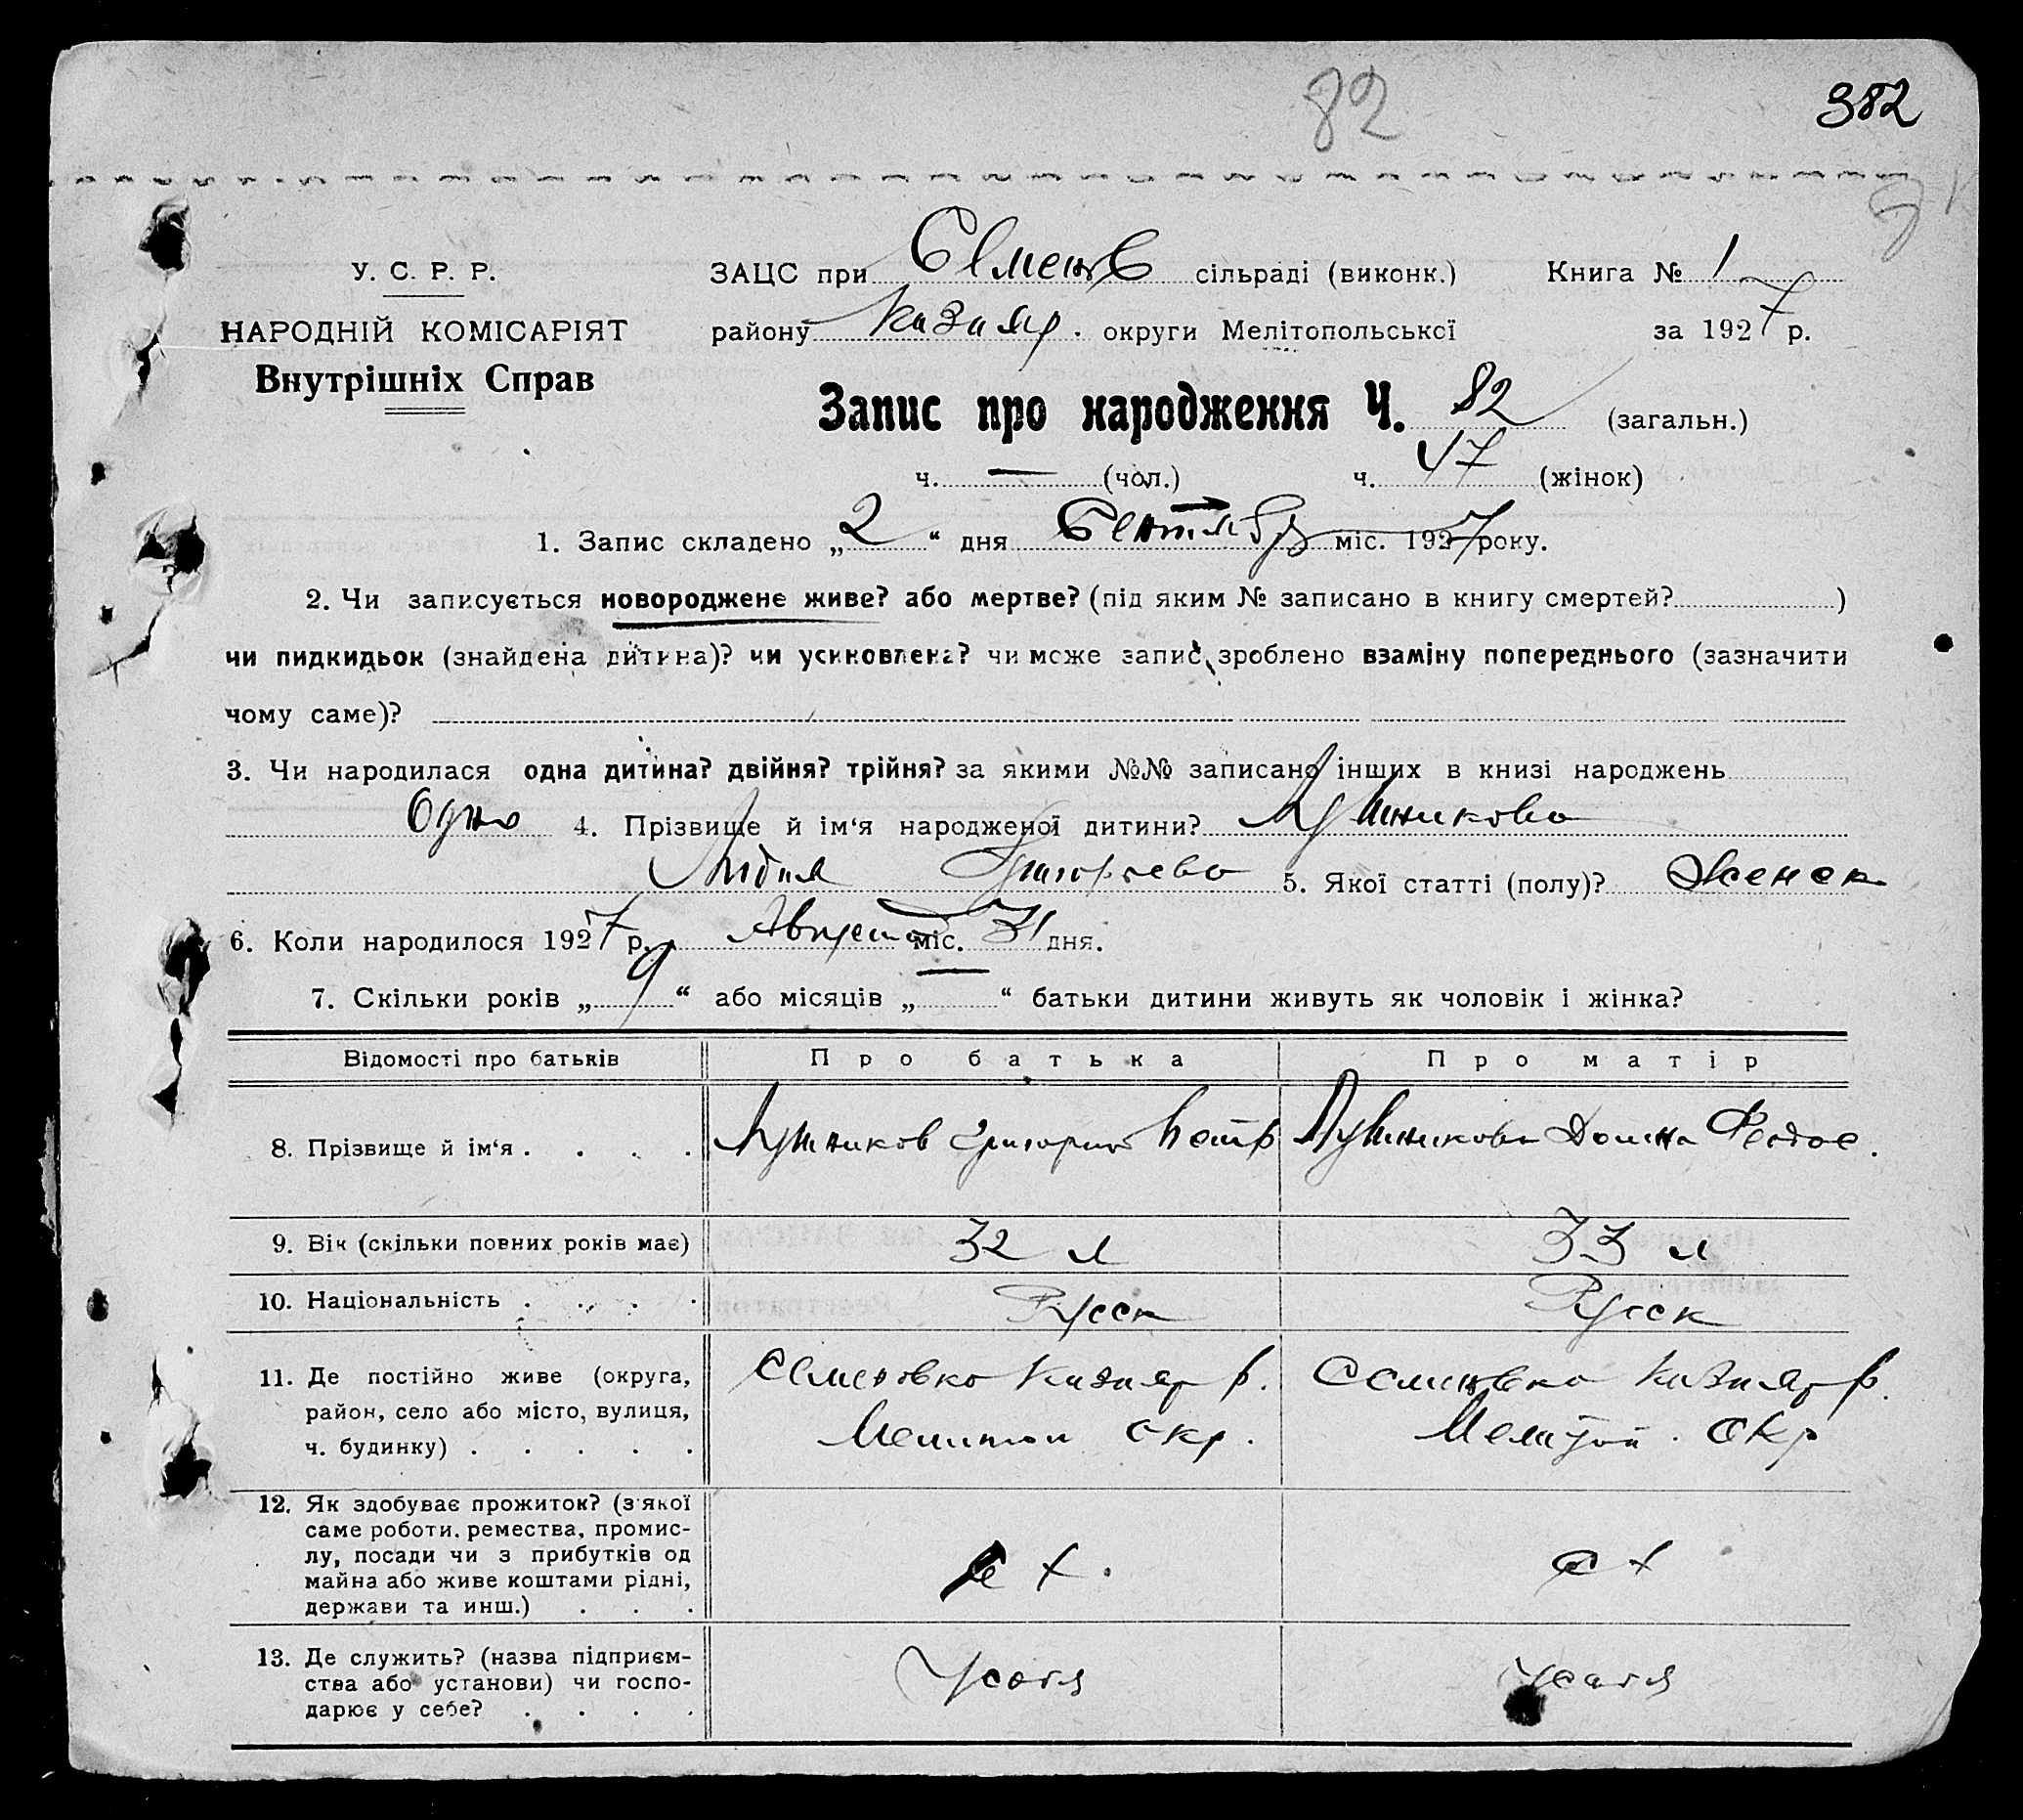 82
382
У. С. Р. Р.
НАРОДНІЙ КОМІСАРІЯТ
Внутрішніх Справ
ЗАЦС при Семенов сільраді (виконк.) Книга № 1
району Кизияр. округи Мелітопольської за 1927 р.
Запис про народження Ч. 82 (загальн.)
ч. — (чол.) ч. 47 (жінок)
1. Запис складено „2“ дня Сентябр міс. 1927 року.
2. Чи записується новороджене живе? або мертве? (під яким № записано в книгу смертей? )
чи пидкидьок (знайдена дитина)? чи усиновлена? чи може запис зроблено взаміну попереднього (зазначити
чому саме)?
3. Чи народилася одна дитина? двійня? трійня? за якими №№ записано інших в книзі народжень
Одно 4. Прізвище й ім‘я народженої дитини? Лушникова
Лидия Григорьева 5. Якої статті (полу)? Женск
6. Коли народилося 1927 р. Август міс. 31 дня.
7. Скільки років „9“ або місяців „ “ батьки дитини живуть як чоловік і жінка?
Відомості про батьків Про батька Про матір
8. Прізвище й ім‘я . . . . Лушников Григорий Петр Лушникова Домна Федос.
9. Вік (скільки повних років має) 32 л 33 л
10. Національність . . . . Русск Русск
11. Де постійно живе (округа,
район, село або місто, вулиця,
ч. будинку) . . . . .
Семеновка Кизияр р. Семеновка Кизияр р.
Мелитоп окр. Мелитоп. окр
12. Як здобуває прожиток? (з якої
саме роботи, ремества, промис-
лу, посади чи з прибутків од
майна або живе коштами рідні,
держави та инш.) . . .
с х. с х
13. Де служить? (назва підприєм-
ства або установи) чи госпо-
дарює у себе? . . . .
У себя У себя